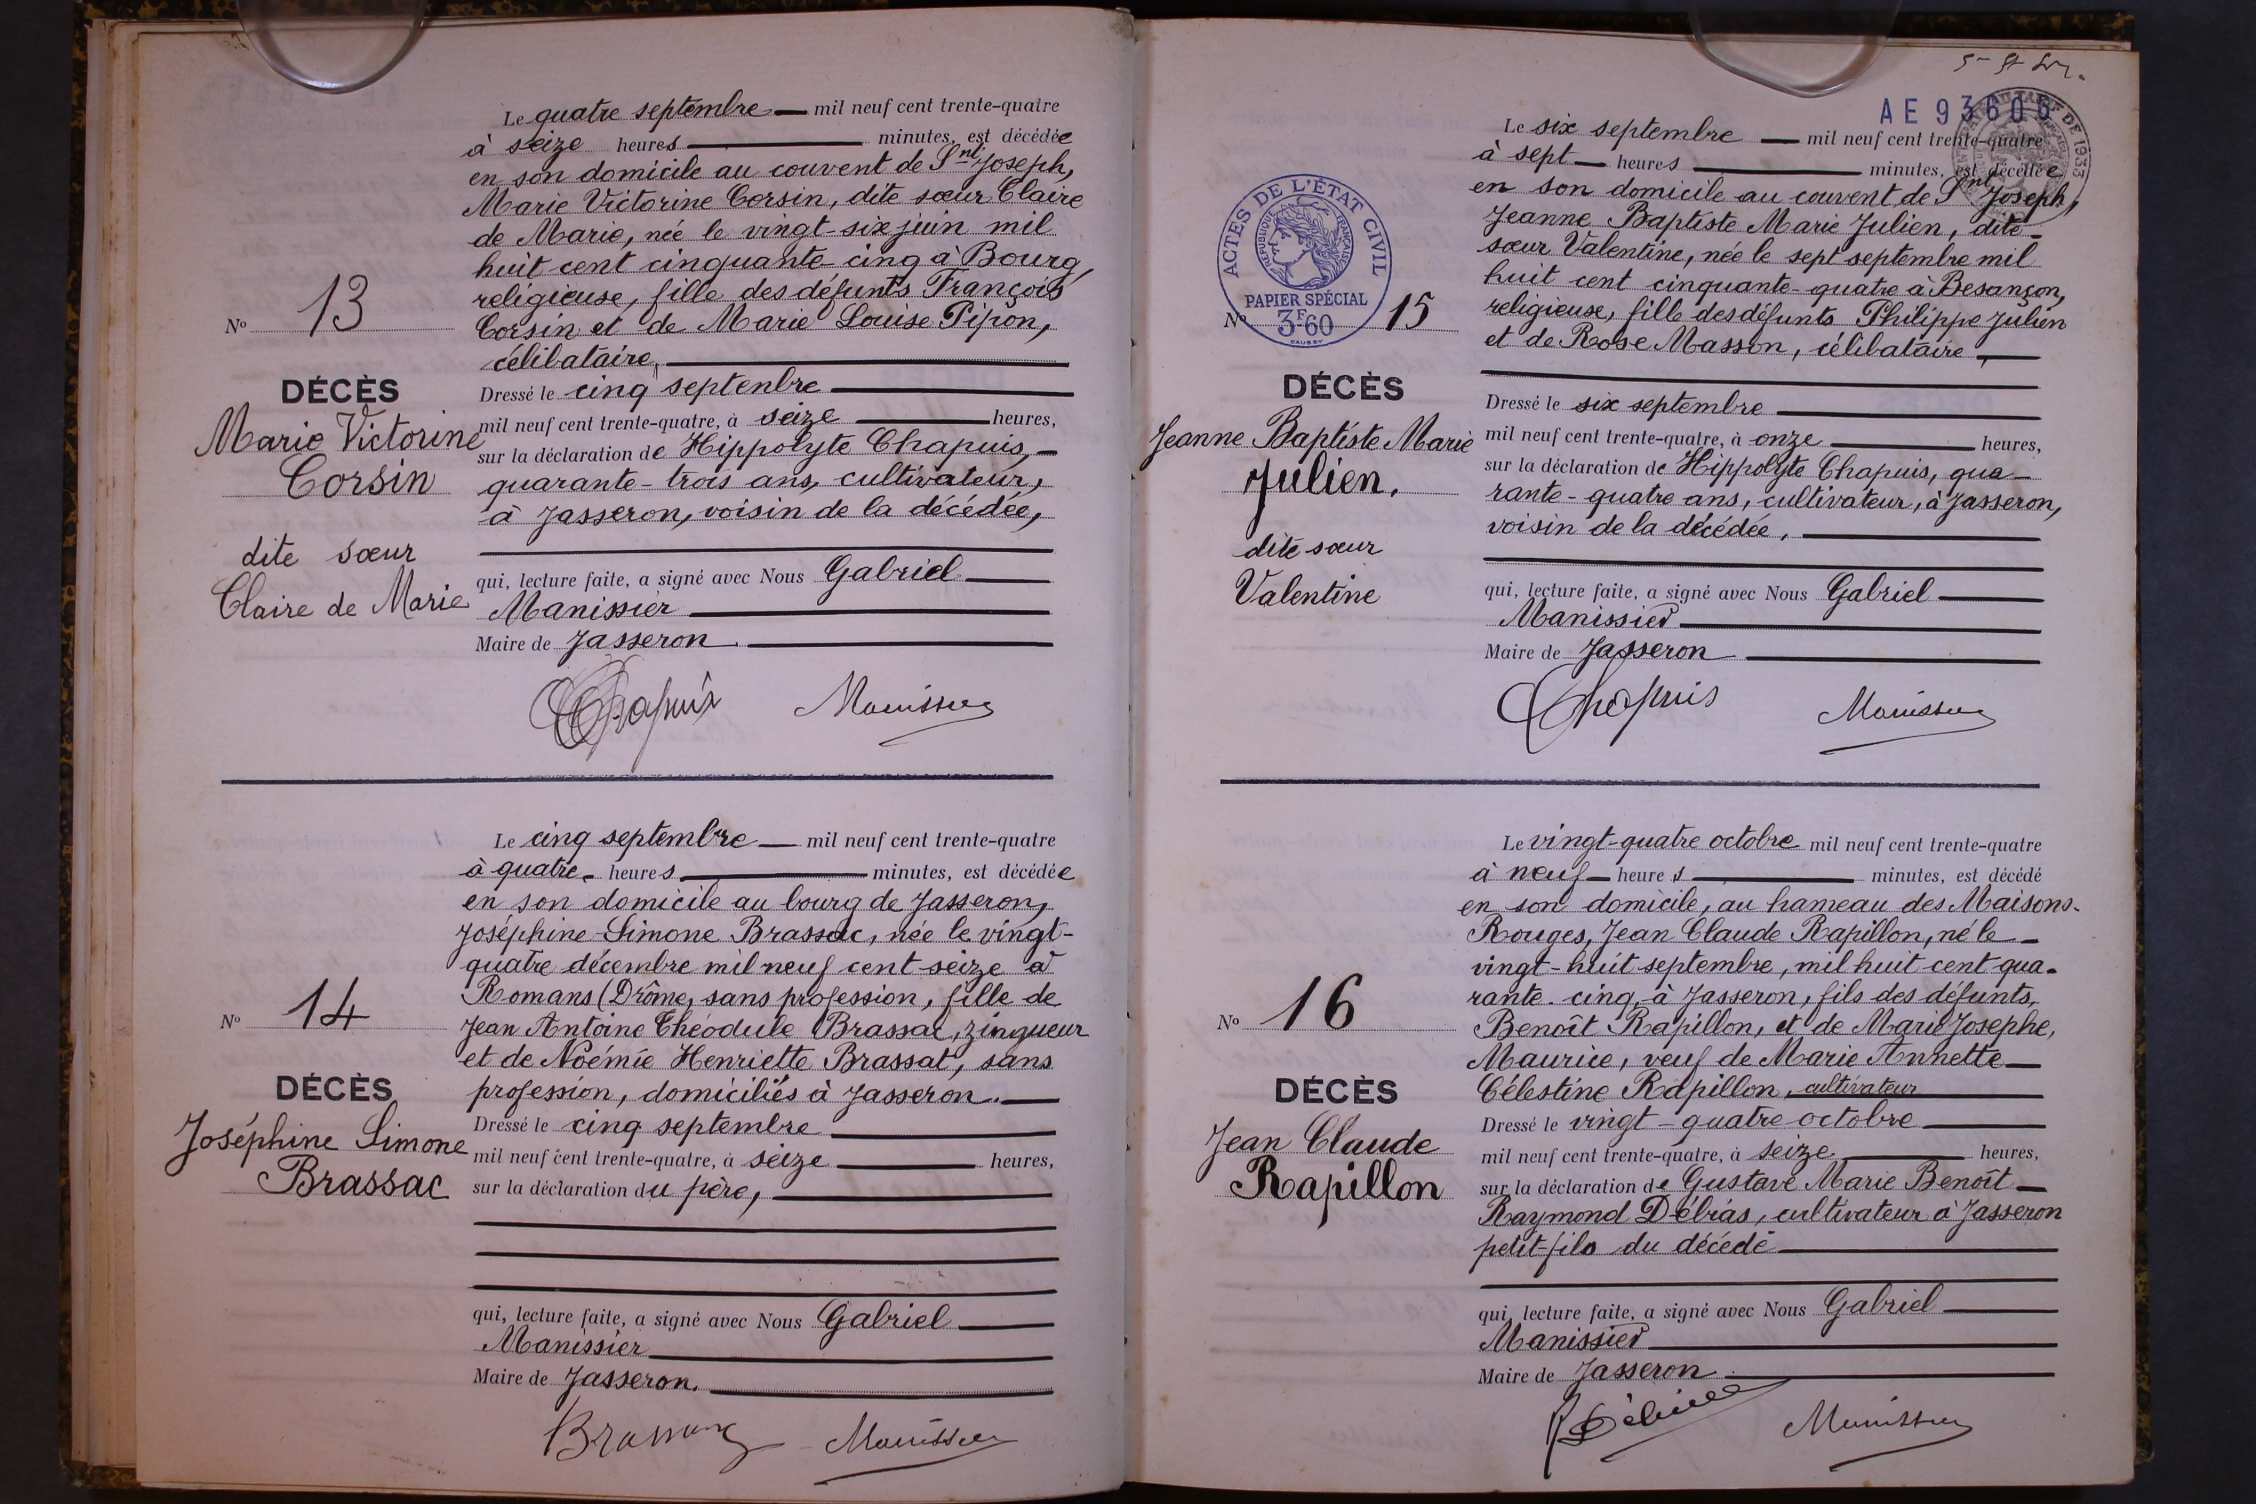 Le quatre septembre mil neuf cent trente-quatre
à seize heures minutes, est décédée
en son domicile au couvent de Snt Joseph,
Marie Victorine Corsin, dite sœur Claire
de Marie, née le vingt-six juin mil
huit cent cinquante-cinq à Bourg,
religieuse, fille des défunts François
Corsin et de Marie Louise Pipon,
célibataire,
No 13
DÉCÈS
Marie Victorine
Corsin
dite sœur
Claire de Marie
Dressé le cinq septenbre
mil neuf cent trente-quatre, à seize heures,
sur la déclaration de Hippolyte Chapuis,
quarante-trois ans, cultivateur,
à Jasseron, voisin de la décédée,
qui, lecture faite, a signé avec Nous Gabriel
Manissier
Maire de Jasseron.
Chapuis Manissier
Le cinq septembre mil neuf cent trente-quatre
à quatre heures minutes, est décédée
en son domicile au bourg de Jasseron,
Joséphine-Simone Brassac, née le vingt-
quatre décembre mil neuf cent seize à
Romans (Drôme, sans profession, fille de
Jean Antoine Théodule Brassac, zingueur
et de Noémie Henriette Brassat, sans
profession, domiciliés à Jasseron.
No 14
DÉCÈS
Joséphine Simone
Brassac
Dressé le cinq septembre
mil neuf cent trente-quatre, à seize heures,
sur la déclaration du père,
qui, lecture faite, a signé avec Nous Gabriel
Manissier
Maire de Jasseron.
Brassac Manissier
AE 93606
DE 1933
Le six septembre mil neuf cent trente-quatre
à sept heures minutes, est décédée
en son domicile au couvent de Snt Joseph,
Jeanne Baptiste Marie Julien, dite
sœur Valentine, née le sept septembre mil
huit cent cinquante-quatre à Besançon,
religieuse, fille des défunts Philippe Julien
et de Rose Masson, célibataire,
ACTES DE L'ÉTAT CIVIL
RÉPUBLIQUE FRANÇAISE
PAPIER SPÉCIAL
3F60
No 15
DÉCÈS
Jeanne Baptiste Marie
Julien.
dite sœur
Valentine
Dressé le six septembre
mil neuf cent trente-quatre, à onze heures,
sur la déclaration de Hippolyte Chapuis, qua-
rante-quatre ans, cultivateur, à Jasseron,
voisin de la décédée,
qui, lecture faite, a signé avec Nous Gabriel
Manissier
Maire de Jasseron
Chapuis Manissier
Le vingt-quatre octobre mil neuf cent trente-quatre
à neuf heures minutes, est décédé
en son domicile, au hameau des Maisons-
Rouges, Jean Claude Rapillon, né le
vingt-huit septembre, mil huit cent qua-
rante-cinq, à Jasseron, fils des défunts,
Benoît Rapillon, et de Marie Josephe,
Maurice, veuf de Marie Annette
Célestine Rapillon, cultivateur
No 16
DÉCÈS
Jean Claude
Rapillon
Dressé le vingt-quatre octobre
mil neuf cent trente-quatre, à seize heures,
sur la déclaration de Gustave Marie Benoît
Raymond Débias, cultivateur à Jasseron
petit-fils du décédé
qui, lecture faite, a signé avec Nous Gabriel
Manissier
Maire de Jasseron
Manissier